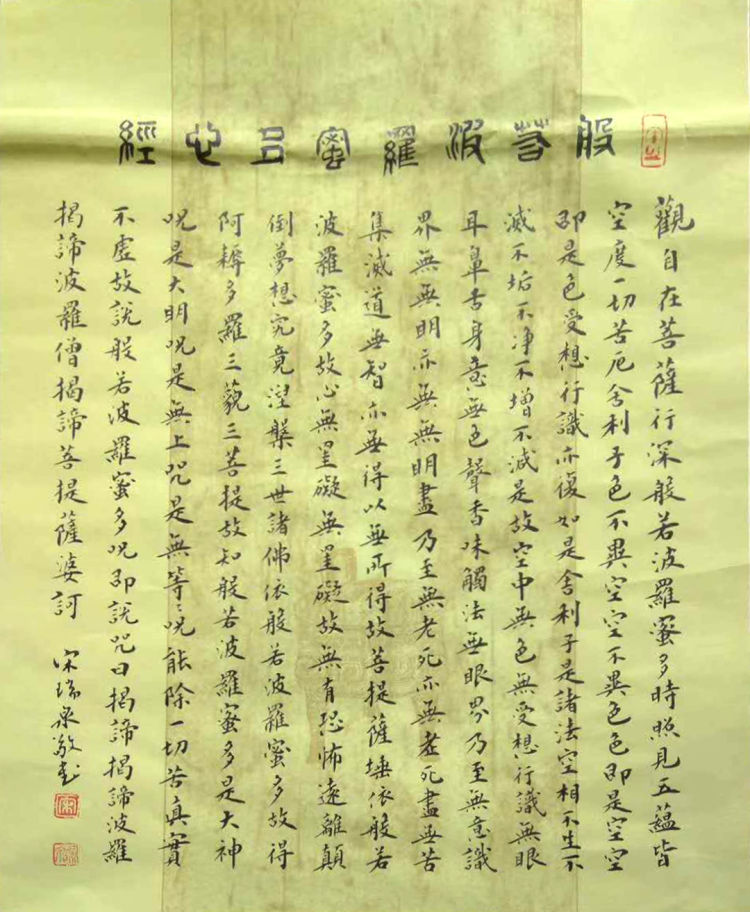 般若波羅蜜多心經
觀自在菩薩行深般若波羅蜜多時照見五蘊皆
空度一切苦厄舍利子色不異空空不異色色即是空空
即是色受想行識亦復如是舍利子是諸法空相不生不
滅不垢不净不增不減是故空中無色無受想行識無眼
耳鼻舌身意無色聲香味觸法無眼界乃至無意識
界無無明亦無無明盡乃至無老死亦無老死盡無苦
集滅道無智亦無得以無所得故菩提薩埵依般若
波羅蜜多故心無罣礙無罣礙故無有恐怖遠離顛
倒夢想究竟涅槃三世諸佛依般若波羅蜜多故得
阿耨多羅三藐三菩提故知般若波羅蜜多是大神
咒是大明咒是無上咒是無等々咒能除一切苦真實
不虛故說般若波羅蜜多咒即說咒曰揭諦揭諦波羅
揭諦波羅僧揭諦菩提薩婆訶 宋瑞泉敬書